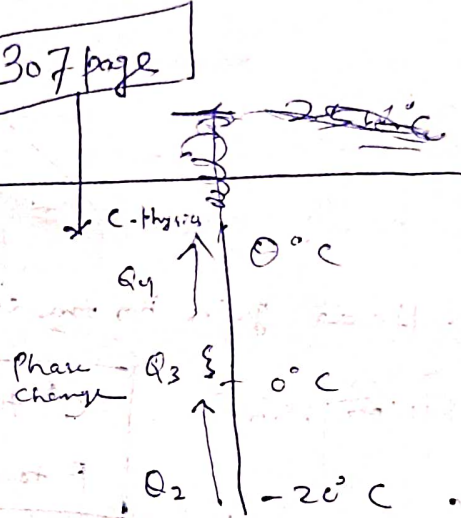 307 page
C-physics
θ°C
Q4
Phase
change
Q3
0°C
Q2
-20°C